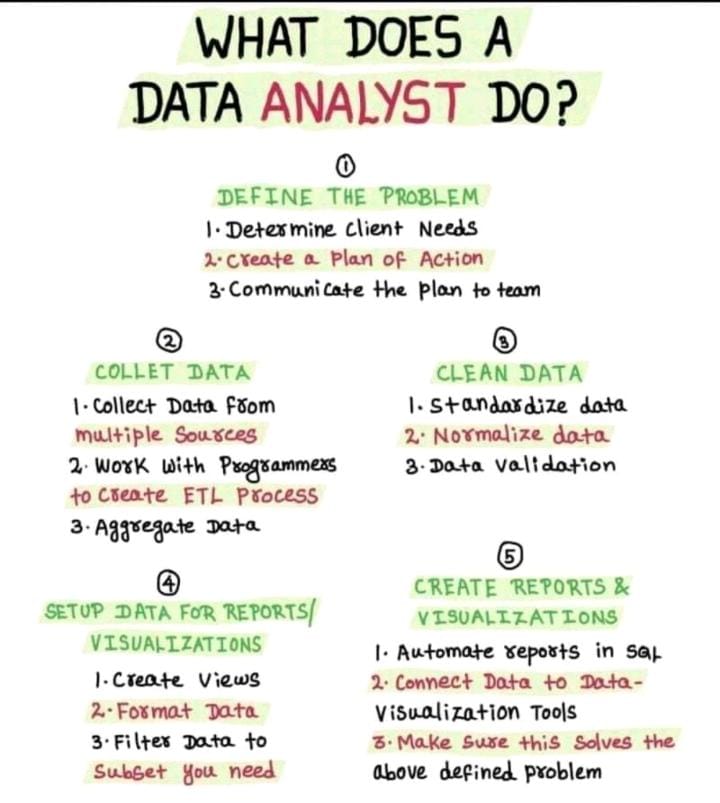 WHAT DOES A
DATA ANALYST DO?
①
DEFINE THE PROBLEM
1. Determine Client Needs
2. Create a Plan of Action
3. Communicate the plan to team
②
COLLET DATA
1. Collect Data from
multiple Sources
2. Work with Programmers
to Create ETL Process
3. Aggregate Data
③
CLEAN DATA
1. Standardize data
2. Normalize data
3. Data validation
④
SETUP DATA FOR REPORTS/
VISUALIZATIONS
1. Create Views
2. Format Data
3. Filter Data to
Subset you need
⑤
CREATE REPORTS &
VISUALIZATIONS
1. Automate reports in SQL
2. Connect Data to Data-
Visualization Tools
3. Make Sure this Solves the
above defined problem